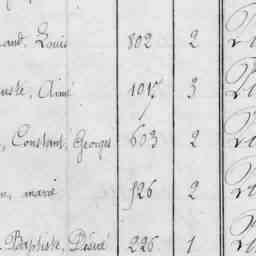 and, Louis 802 2
uste, Aimé 1017 3
, Constant, Georges 603 2
n, marie 526 2
Baptiste, Désiré 226 1